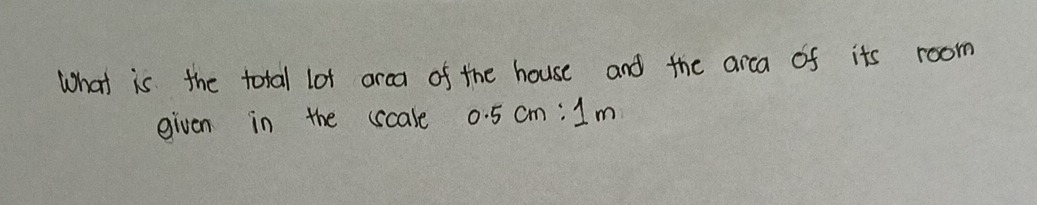 What is the total lot area of the house and the area of its room
given in the scale 0.5 cm : 1 m